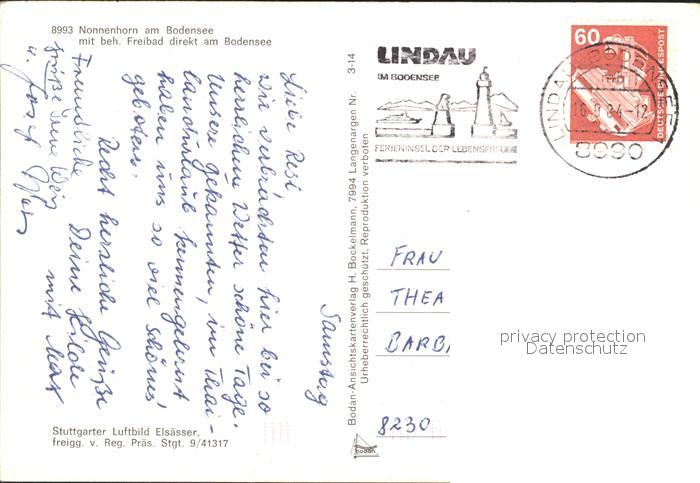 8993 Nonnenhorn am Bodensee
mit beh. Freibad direkt am Bodensee
Samstag
Liebe Resi,
wir verbrachten hier bei so
herrlichem Wetter schöne Tage.
Unsere Bekannten, im Thai-
landurlaub kennengelernt
haben uns so viel schönes
geboten.
Recht herzliche Grüße
Deine Hilde
mit Max
Freundliche
Grüße
u. Josef
Stuttgarter Luftbild Elsässer,
freigg. v. Reg. Präs. Stgt. 9/41317
Bodan-Ansichtskartenverlag H. Bockelmann, 7994 Langenargen Nr. 3-14
Urheberrechtlich geschützt. Reproduktion verboten
bodan
LINDAU
IM BODENSEE
FERIENINSEL DER LEBENSFREUDE
LINDAU, BODENSEE
16.9.84-12
8990
60
DEUTSCHE BUNDESPOST
FRAU
THEA
BARB
8230
privacy protection
Datenschutz